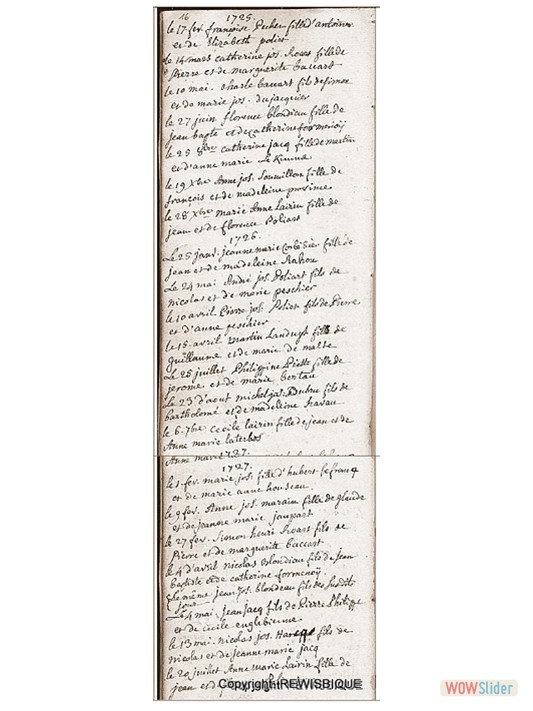 16
1725.
le 17 fev. françoise Pecher fille d'antoine
et de Elizabeth poliet
le 14 mars catherine jos. Hoxes fille de
Pierre et de marguerite baccart
le 10 mai. charle baccart fils de simon
et de marie jos. dujacquier
le 27 juin florence blondieu fille de
jean bapte et de catherine formenoij
le 25 8bre catherine jacq fille de martin
et d'anne marie
le 19 Xbre Anne jos. Soumillon fille de
françois et de madeleine
le 28 Xbre marie Anne lairin fille de
jean et de florence Poliart
1726.
Le 25 janv. jeanne marie fille de
jean et de madeleine
Le 24 mai André jos. Poliart fils de
nicolas et de marie peschier
le 10 avril Pierre jos. Poliet fils de Pierre
et d'anne peschier
le 15 avril martin Landuyt fils de
guillaume et de marie de malte
Le 25 juillet Philippine Piette fille de
jerome et de marie bertau
Le 23 d'aout michel fils de
bartholomé et de madeleine
le 6 7bre Cecile lairin fille de jean et de
Anne marie laterbos
Anne marie 1727.
1727.
le 1 fev. marie jos. fille d'hubert lefrancq
et de marie anne houseau
le 9 fev. Anne jos. marain fille de glaude
et de jeanne marie joupart
le 27 fev. Simon henri fils de
Pierre et de marguerite baccart
le 4 d'avril nicolas blondiau fils de jean
baptiste et de catherine formenoij
Le même jean jos. blondeau fils des susdits
jour
Le 4 mai. jean jacq fils de Pierre Philippe
et de cicile englebienne
le 13 mai. nicolas jos. fils de
nicolas et de jeanne marie jacq
le 20 juillet Anne marie Lairin fille de
jean et
Copyright-IREWISBIQUE
WOWSlider